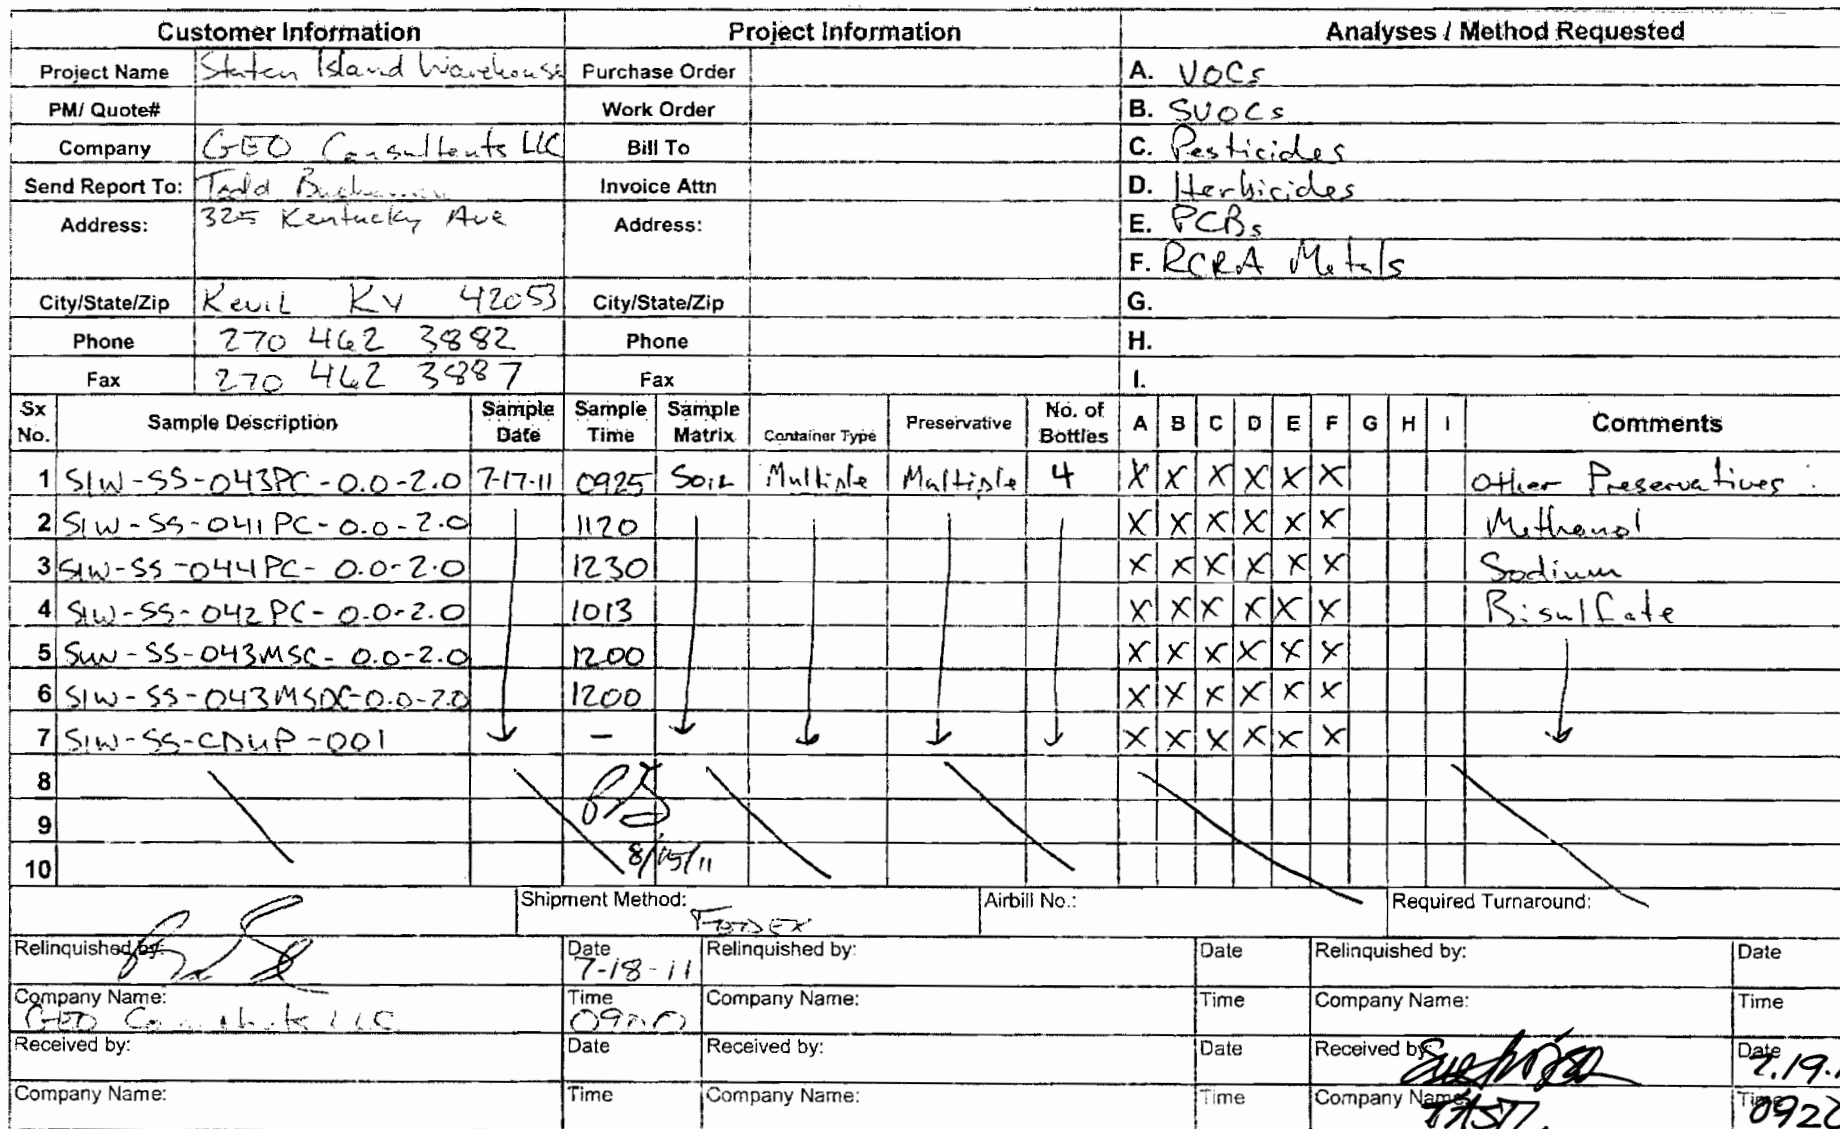 Customer Information Project Information Analyses / Method Requested
Project Name Staten Island Warehouse Purchase Order A. VOCs
PM/ Quote# Work Order B. SVOCs
Company GEO Consultants LLC Bill To C. Pesticides
Send Report To: Todd Invoice Attn D. Herbicides
Address: 325 Kentucky Ave Address: E. PCBs
F. RCRA Metals
City/State/Zip Kevil KY 42053 City/State/Zip G.
Phone 270 462 3882 Phone H.
Fax 270 462 3887 Fax I.
Sx No. Sample Description Sample Date Sample Time Sample Matrix Container Type Preservative No. of Bottles A B C D E F G H I Comments
1 SIW-SS-043PC-0.0-2.0 7-17-11 0925 Soil Multiple Multiple 4 X X X X X X Other Preservatives:
2 SIW-SS-041PC-0.0-2.0 1120 X X X X X X Methanol
3 SIW-SS-044PC-0.0-2.0 1230 X X X X X X Sodium
4 SIW-SS-042PC-0.0-2.0 1013 X X X X X X Bisulfate
5 SIW-SS-043MSC-0.0-2.0 1200 X X X X X X
6 SIW-SS-043MSDC-0.0-2.0 1200 X X X X X X
7 SIW-SS-CDUP-001 – X X X X X X
8
9
10 8/15/11
Shipment Method: FedEx Airbill No.: Required Turnaround:
Relinquished by: Date 7-18-11 Relinquished by: Date Relinquished by: Date
Company Name: GEO Consultants LLC Time 0900 Company Name: Time Company Name: Time
Received by: Date Received by: Date Received by: Date 7.19.
Company Name: Time Company Name: Time Company Name: Time 092